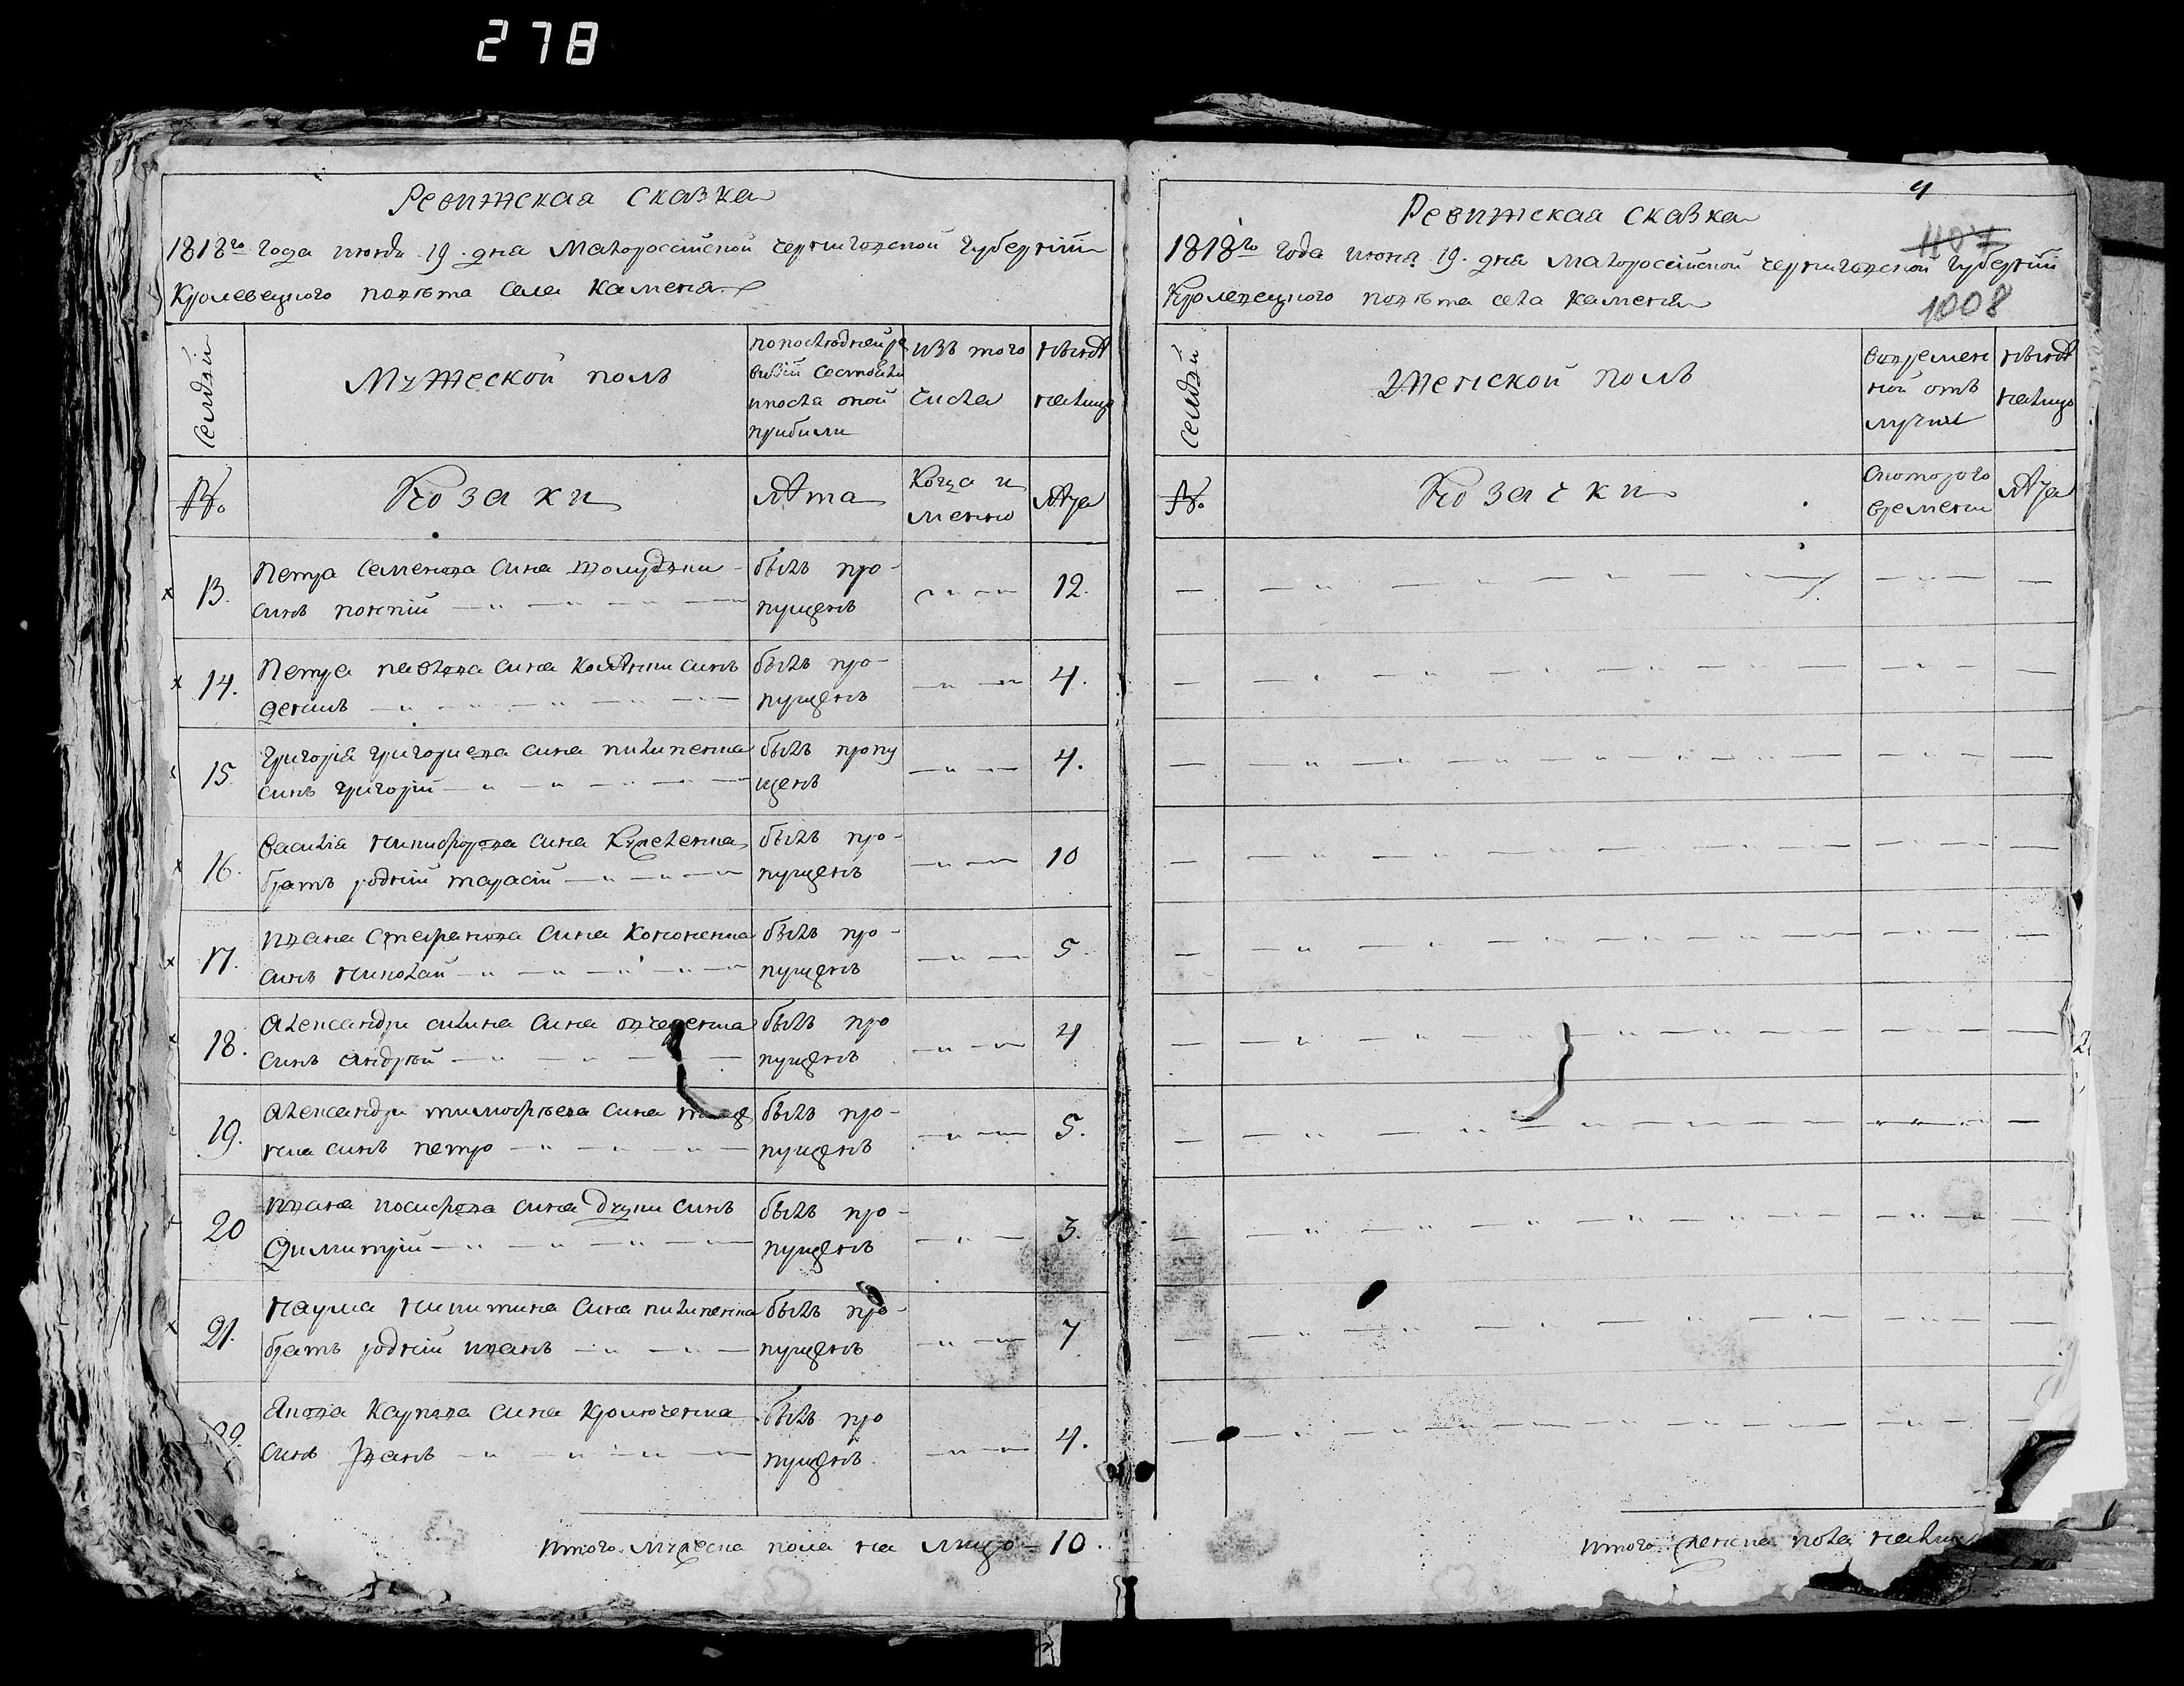 278
Ревижская сказка
1818го года июня 19. дня Малороссійской черниговской губерніи
Кролевецкого повѣта села Каменя
семѣй
Мужеской полъ
по последней ре
визіи состояли
и после оной
прибыли
изъ того
числа
нынѣ
налицо
№.
Козаки
лѣта
Когда и
менно
лѣта
13.
Петра Семенова сина
синъ
былъ про-
пущенъ
12.
14.
Петра павлова сина синъ
денисъ
былъ про-
пущенъ
4.
15
Григорія григориева сина пилипенка
синъ григорій
былъ пропу
щенъ
4.
16.
Василія никифорова сина
братъ родній тарасій
былъ про-
пущенъ
10
17.
Ивана Стефанова сина Кононенка
синъ николай
былъ про-
пущенъ
5.
18.
Александры сина
синъ андрей
былъ про
пущенъ
4
19.
Александры тимофѣева сина
синъ петро
былъ про-
пущенъ
5.
20
Ивана иосифова сина синъ
Димитрій
былъ про-
пущенъ
3.
21.
Наума никитина сина пилипенка
братъ родній иванъ
былъ про-
пущенъ
7
22.
Якова Карпова сина
синъ Иванъ
былъ про
пущенъ.
4.
итого мужеска пола на лицо – 10.
4
1008
Ревижская сказка
1818го года июня 19. дня Малороссійской черниговской губерніи
Кролевецкого повѣта села Каменя
семѣй
Женской полъ
во времен
ной отъ
лучке
нынѣ
налицо
№.
Козачки
с которого
времени
лѣта
итого женска пола